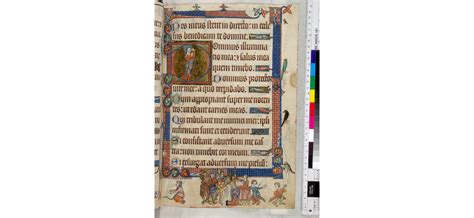 Pes meus stetit in directo: in eccle
siis benedicam te domine.
Dominus illumina
tio mea: & salus mea
quem timebo.
Dominus protector
vite mee: a quo trepidabo.
Dum appropiant super me no
centes: ut edant carnes meas.
Qui tribulant me inimici mei: ipsi
infirmati sunt et ceciderunt.
Si consistant adversum me castra:
non timebit cor meum.
Si exurgat adversum me prelium: